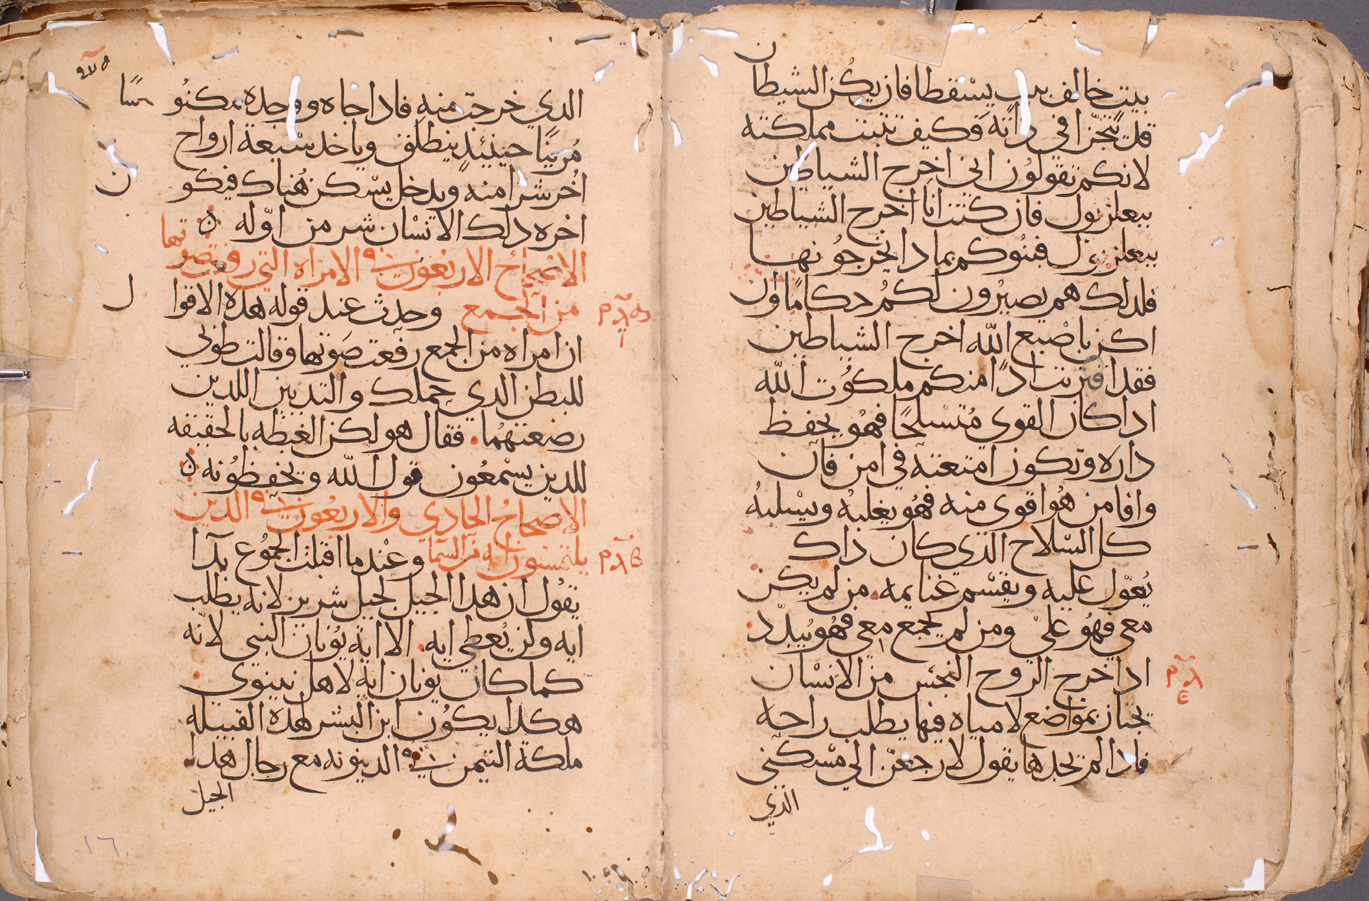 بيت خالف بيت يسقط فان يكن الشيطان
قد تجزا في داته فكيف تثبت مملكته
لانكم تقولون انى اخرج الشياطين
ببعلزبول فان كنت انا اخرج الشياطين
ببعلزبول فبنوكم بمادا يخرجونها
فلدلك هم يصيرون لكم حكاما وان
اكن باصبع الله اخرج الشياطين
فقد اقتربت ادا منكم ملكوت الله
ادا كان القوى متسلحا فهو يحفظ
داره وتكون امتعته في امن فان
وافا من هو اقوى منه فهو يغلبه ويسلبه
كل السلاح الذي كان داك
يعول عليه ويقسم غنايمه من لم يكن
معي فهو علي ومن لم يجمع معي فهو يبدد
ادا خرج الروح النجس من الانسان
يجتاز بمواضع لا مياه فيها يطلب راحه
فادا لم يجدها يقول لارجعن الي مسكني
الذي
الدي خرجت منه فادا جاه ووجده مكنوسا
مزينا حينئد ينطلق وياخد سبعة ارواح
اخر شرا منه ويدخل يسكن هناك فيكون
اخرة دلك الانسان شر من اوله
الاصحاح الاربعون في الامراه التي رفعت صوتها
من الجمع وحدث عند قوله هده الاقوال
ان امراه من الجمع رفعت صوتها وقالت طوبي
للبطن الدي حملك والتديين اللدين
رضعتهما فقال هو لكن الغبطه بالحقيقه
للدين يسمعون قول الله ويحفظونه
الاصحاح الحادي والاربعون في الدين
يلتمسون ايه من السما وعندما اقبلت الجموع بدا
يقول ان هدا الجيل لجيل شرير لانه يطلب
ايه ولن يعطي ايه الا اية يونان النبي لانه
كما كان يونان اية لاهل نينوي
هكدا يكون ابن البشر لهده القبيله
ملكة التيمن في الدينونه مع رجال هدا
الجيل
١٦٠